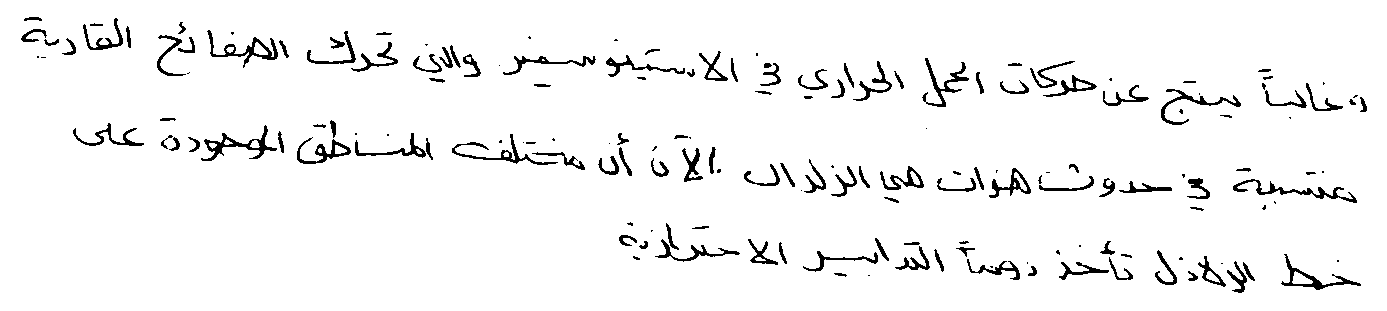 وغالباً ينتج عن حركات الحمل الحراري في الاستينوسفير والتي تحرك الصفائح القارية
متسببة في حدوث هزات هي الزلزال . الآن أن مختلف المناطق الموجودة على
خط الزلازل تأخذ دوماً التدابير الاحترازية